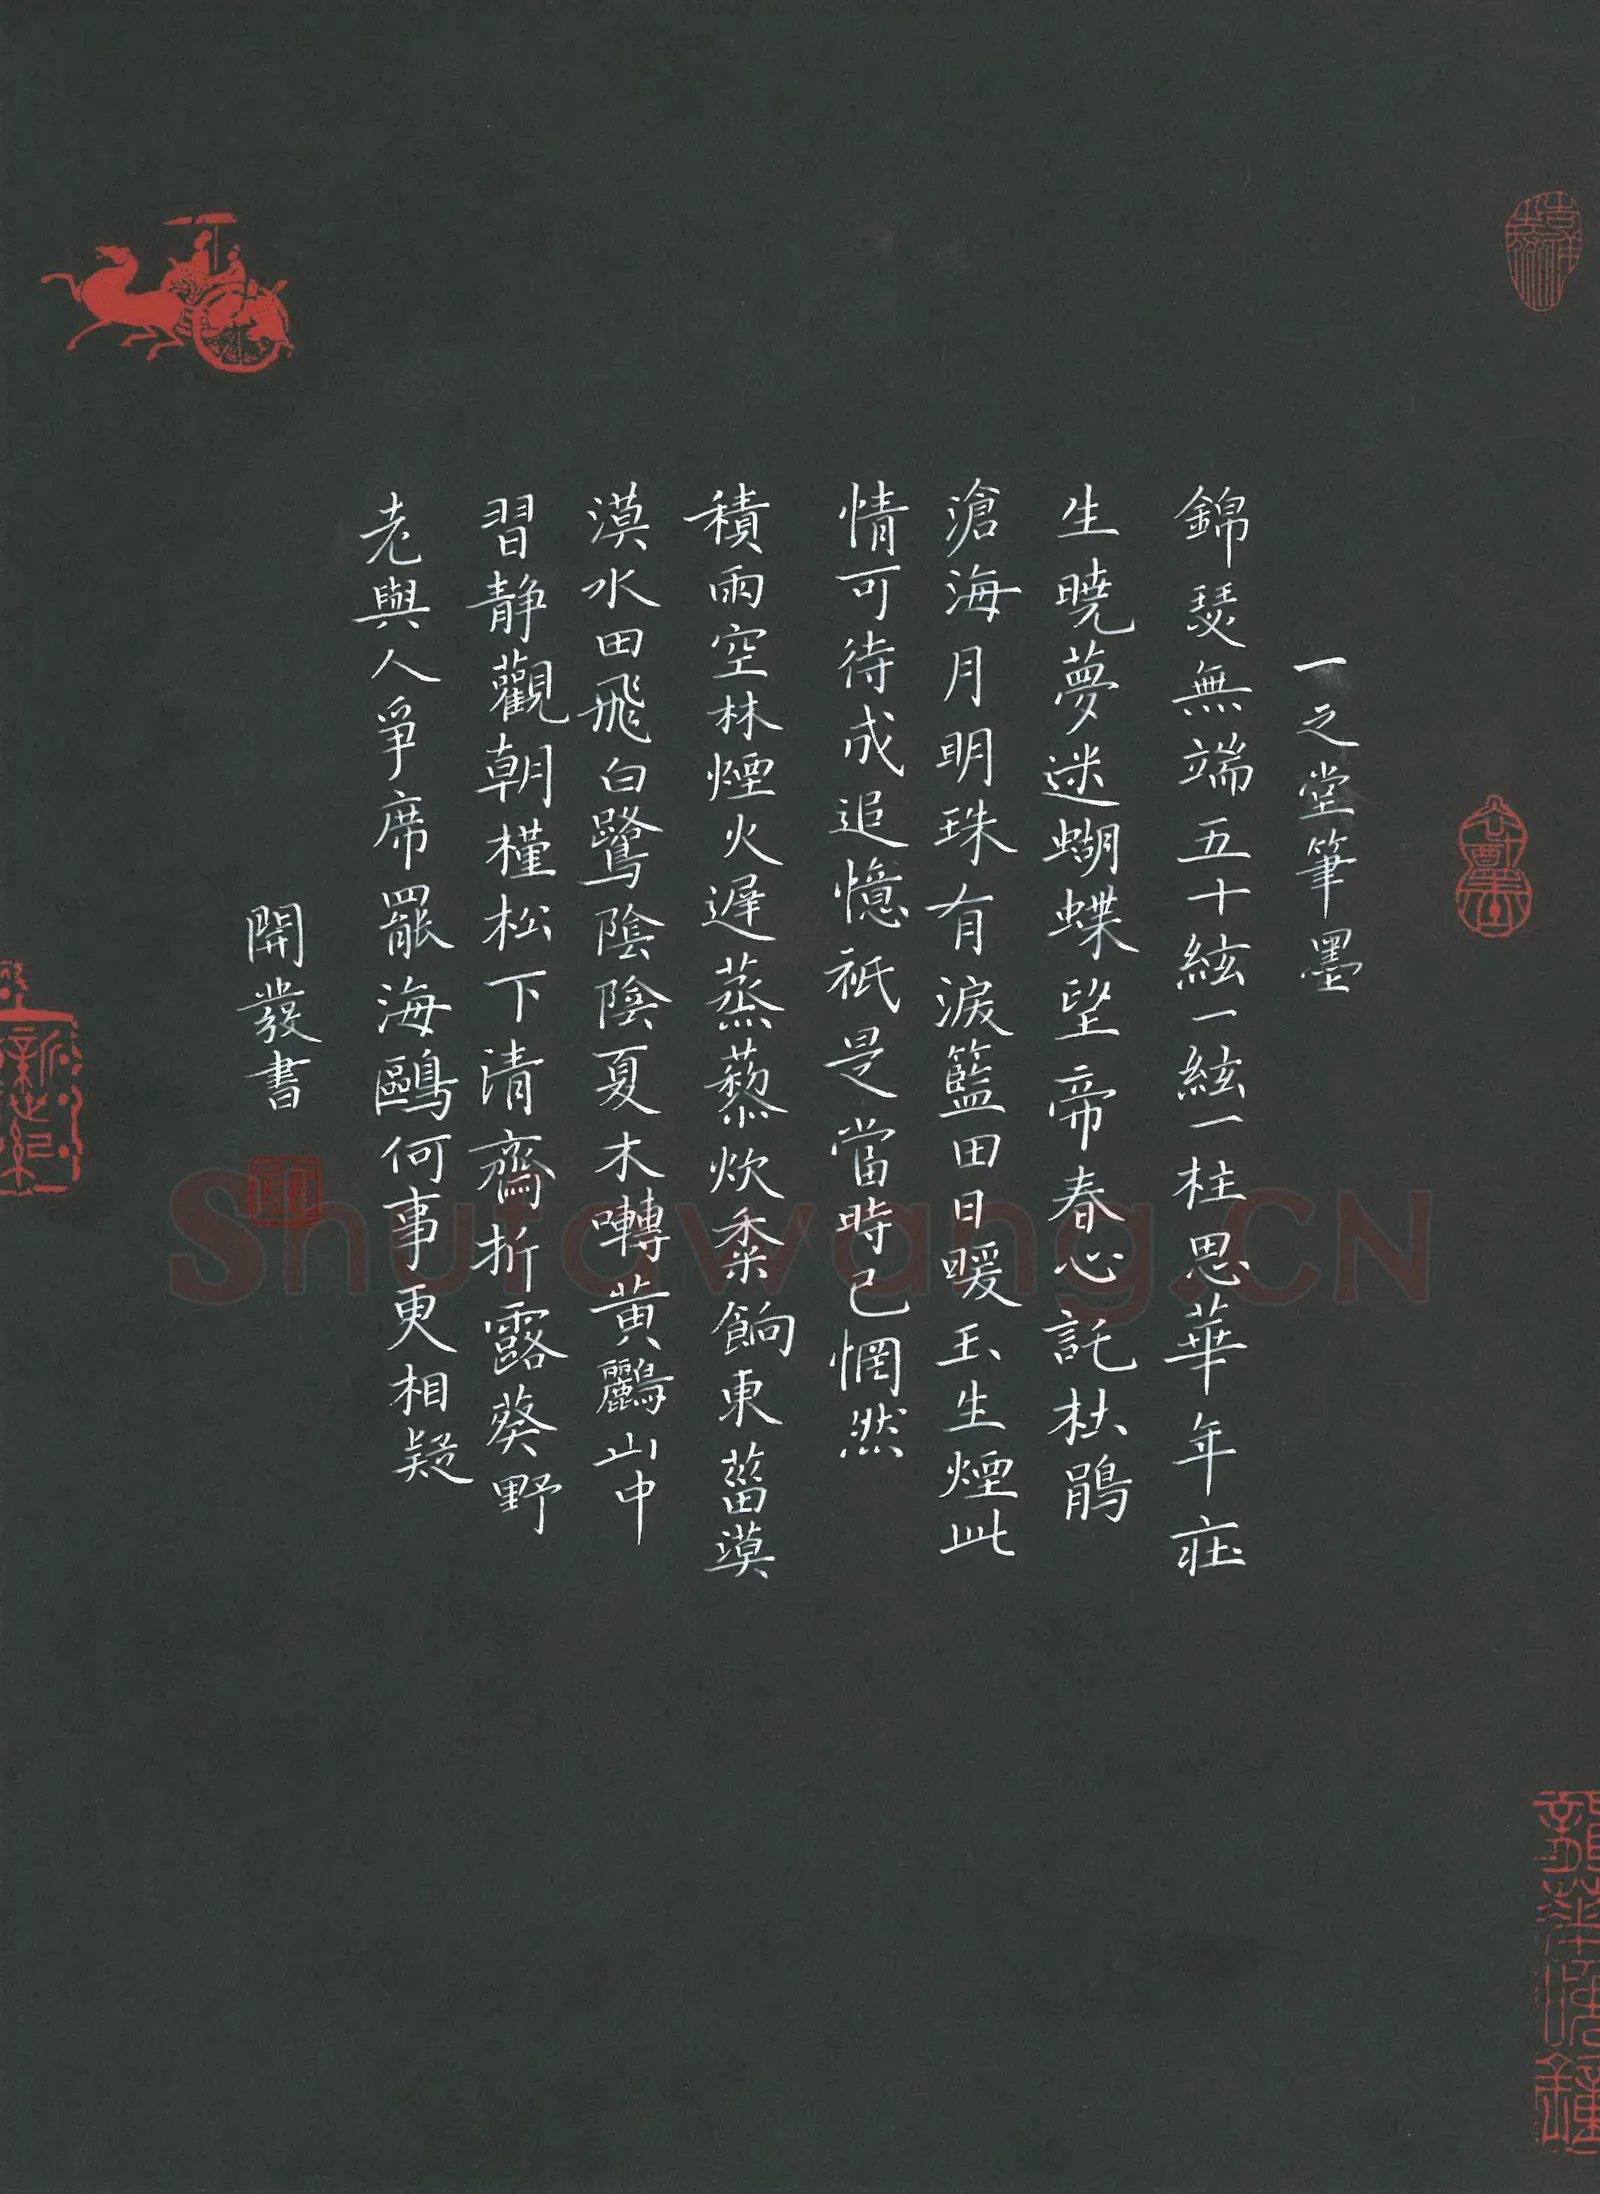 一之堂筆墨
錦瑟無端五十絃一絃一柱思華年莊
生曉夢迷蝴蝶望帝春心託杜鵑
滄海月明珠有淚籃田日暖玉生煙此
情可待成追憶祇是當時已惘然
積雨空林煙火遲蒸藜炊黍餉東菑漠
漠水田飛白鷺陰陰夏木囀黃鸝山中
習静觀朝槿松下清齋折露葵野
老與人爭席罷海鷗何事更相疑
開發書
Shufawang.CN